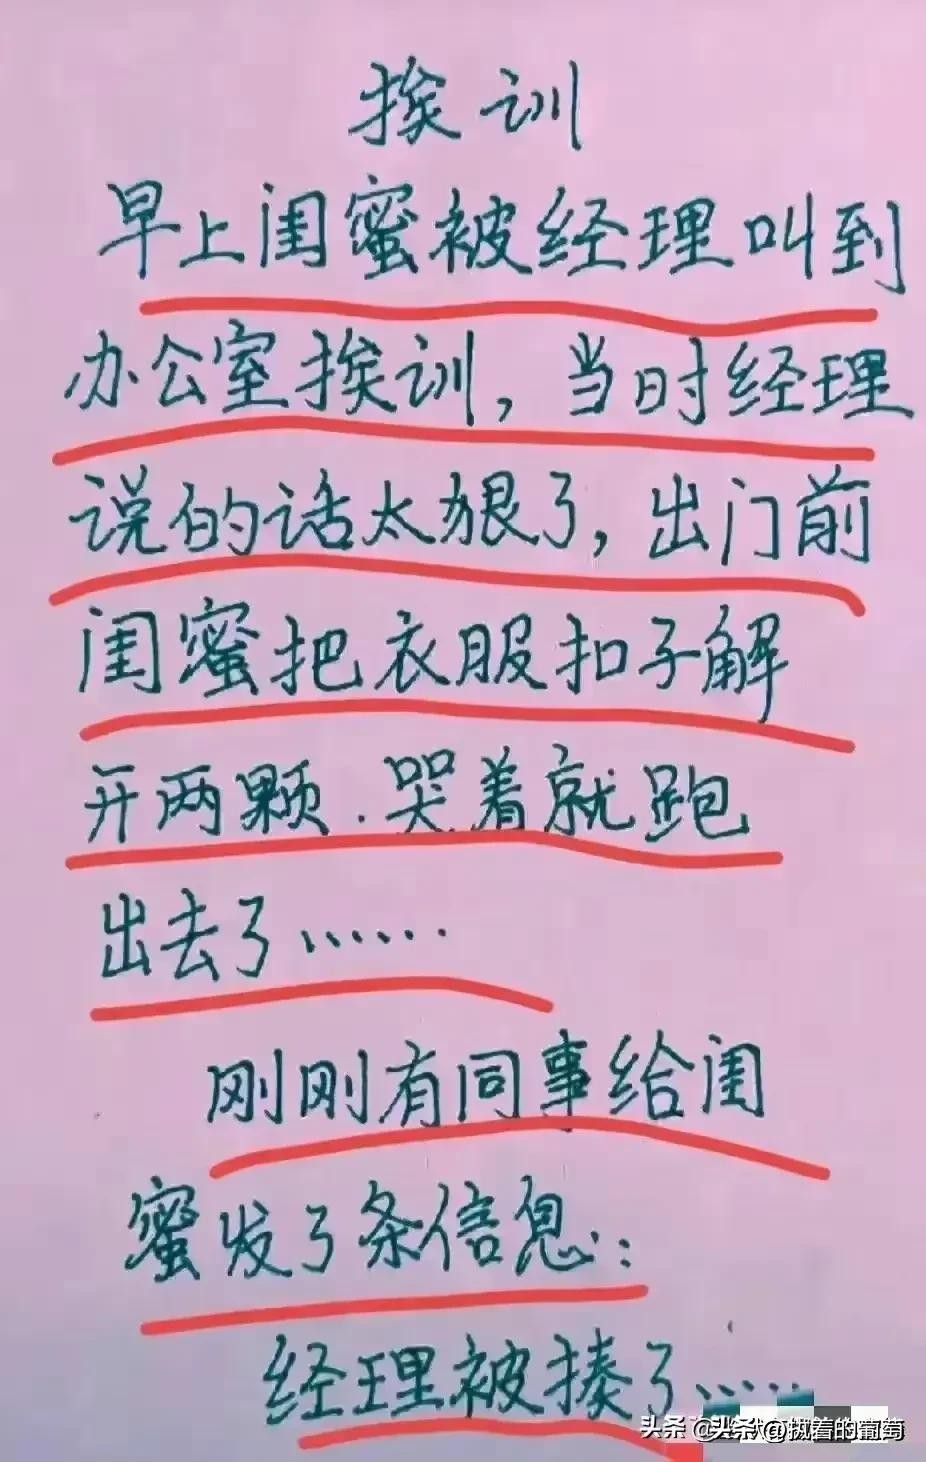 挨训
早上闺蜜被经理叫到
办公室挨训，当时经理
说的话太狠了，出门前
闺蜜把衣服扣子解
开两颗.哭着就跑
出去了……
刚刚有同事给闺
蜜发了条信息：
经理被揍了……
头条 @执着的葡萄